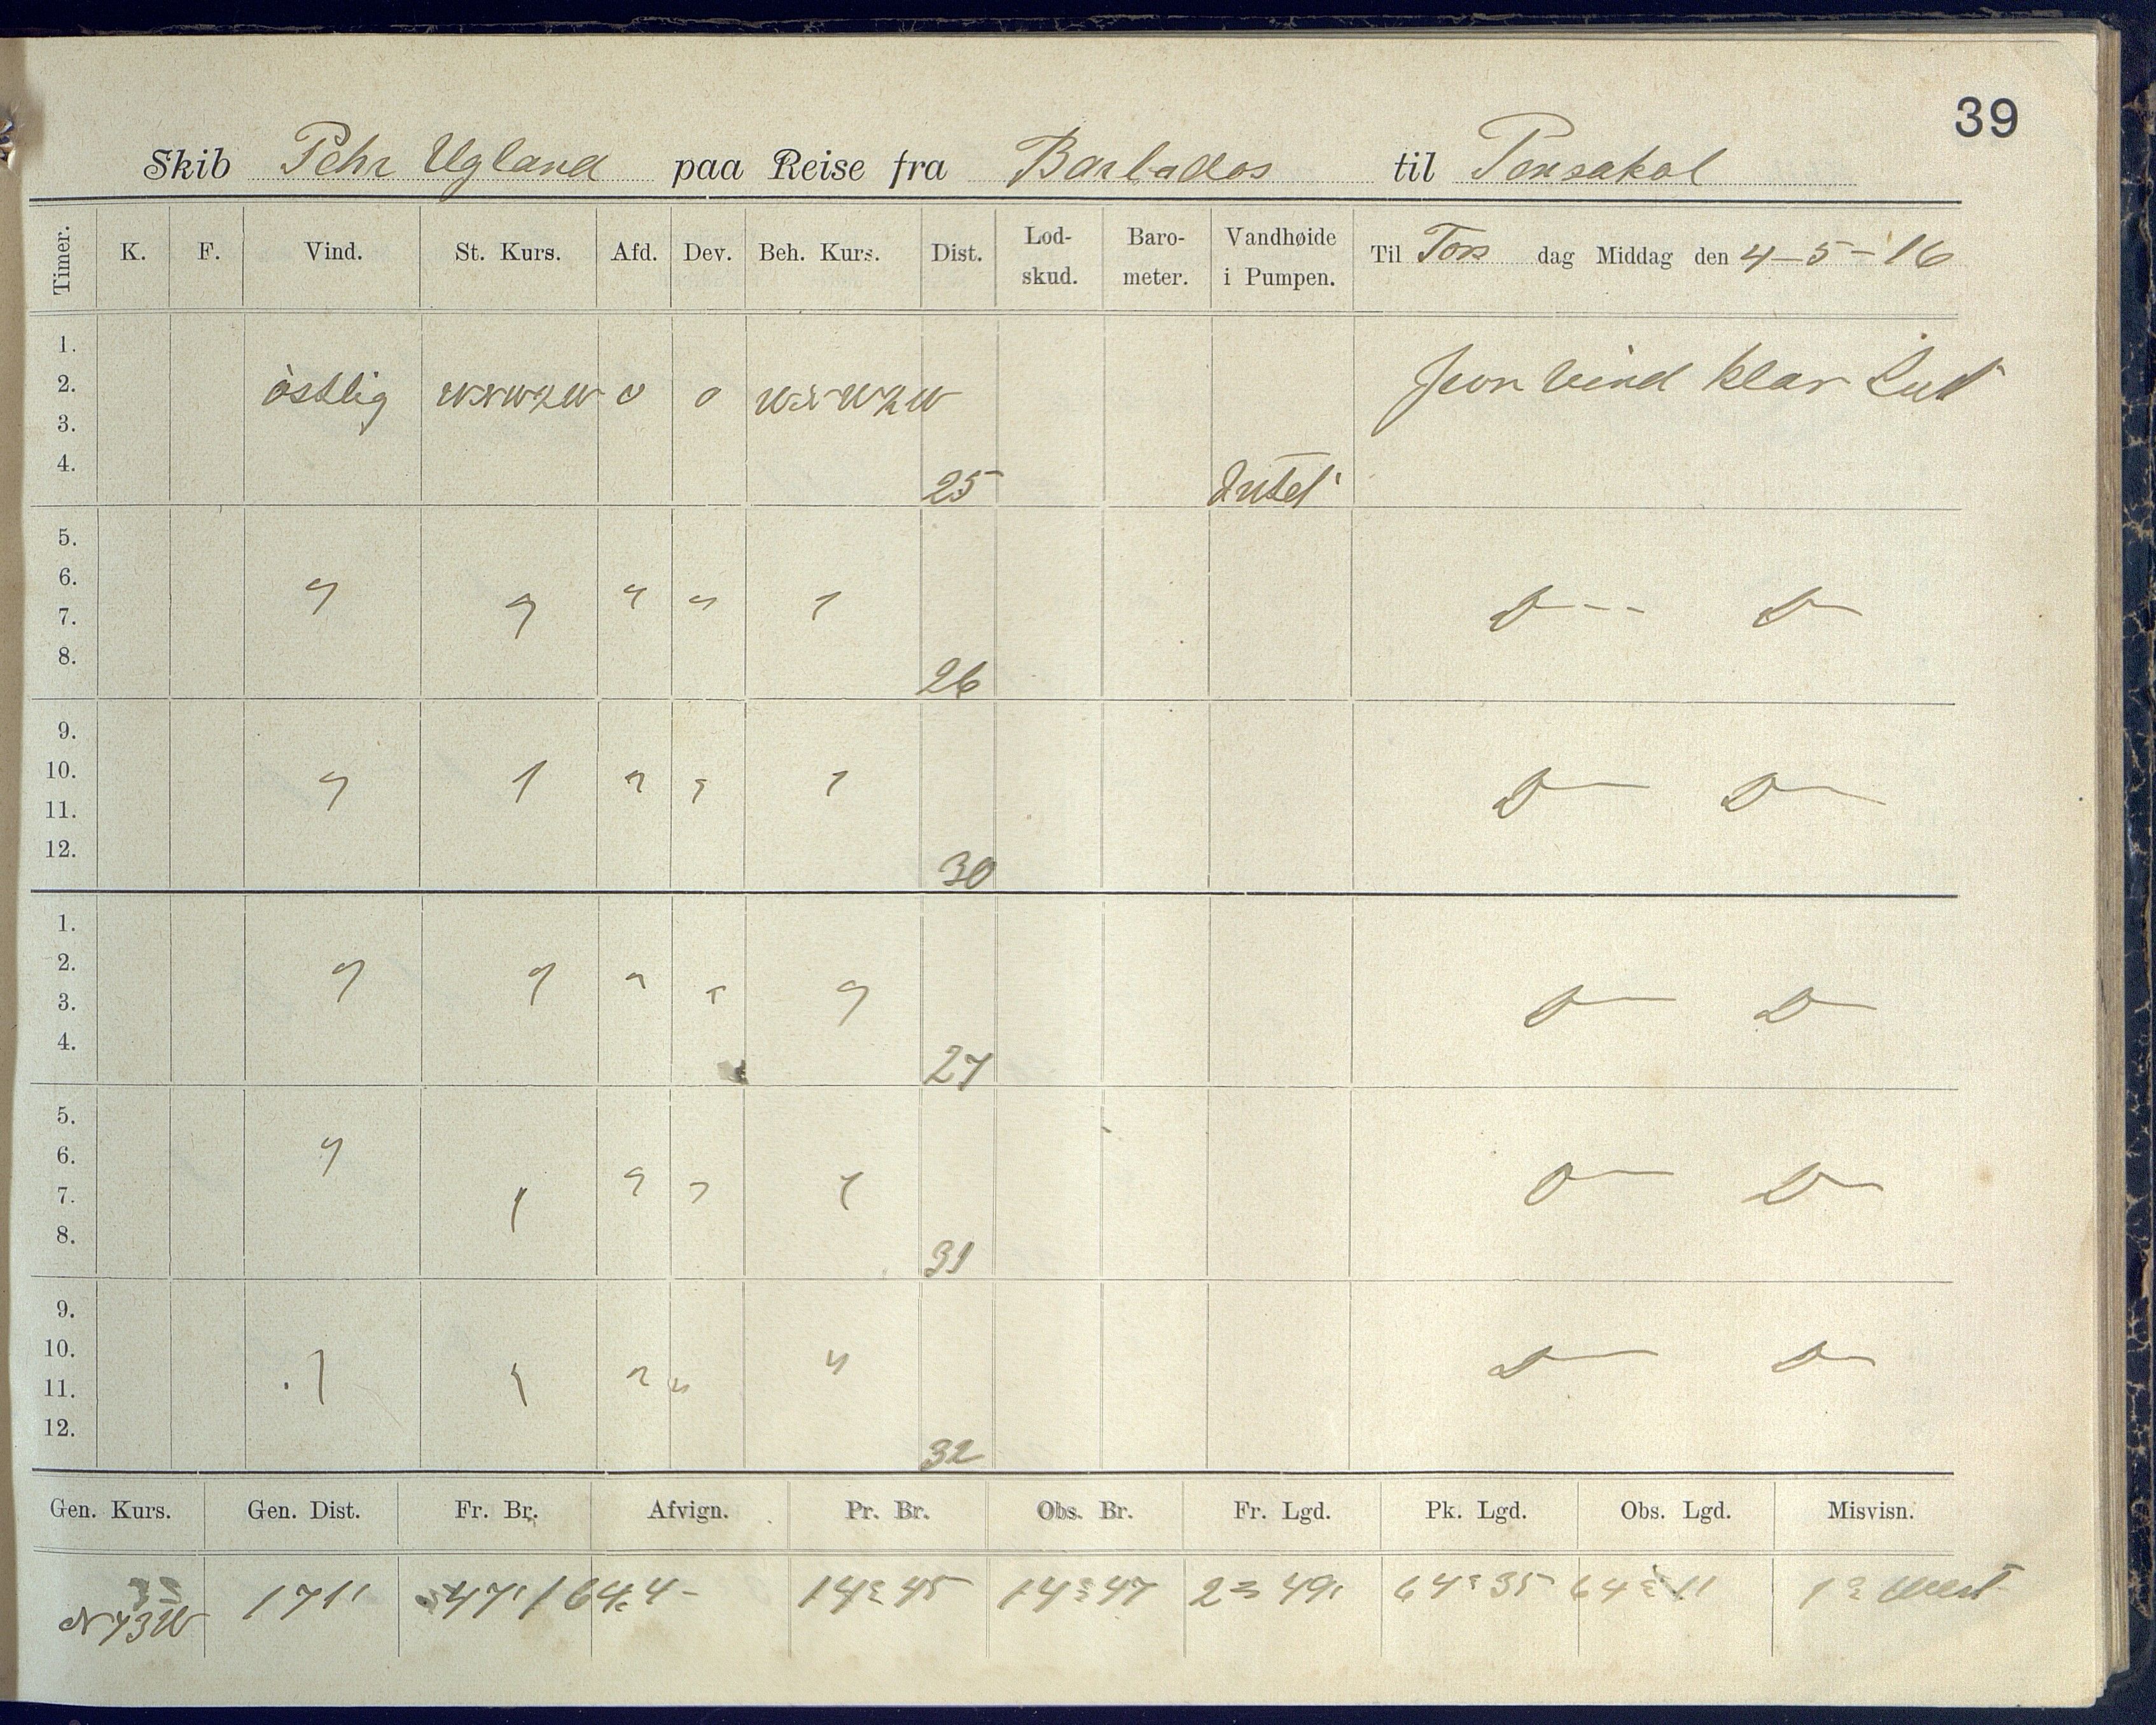 39
Skib Pehr Ugland paa Reise fra Barbados til Pensakol
Timer. K. F. Vind. St. Kurs. Afd. Dev. Beh. Kurs. Dist. Lod-skud. Baro-meter. Vandhøide i Pumpen. Til Tors dag Middag den 4-5-16
1.
2. östlig WNW½W 0 0 WNW½W vind klar Luft
3.
4. 25
5.
6. " " " " "
7. D-- D-
8. 26
9.
10. " " " " "
11. D- D-
12. 30
1.
2. " " " " "
3. D- D-
4. 27
5.
6. " " " " "
7. D- D-
8. 31
9.
10. " " " " "
11. D- D-
12. 32
Gen. Kurs. Gen. Dist. Fr. Br. Afvign. Pr. Br. Obs. Br. Fr. Lgd. Pk. Lgd. Obs. Lgd. Misvisn.
N73W 171' 47' 164.4 14° 45 14° 47 2° 49' 64° 35 64° 11 1° West